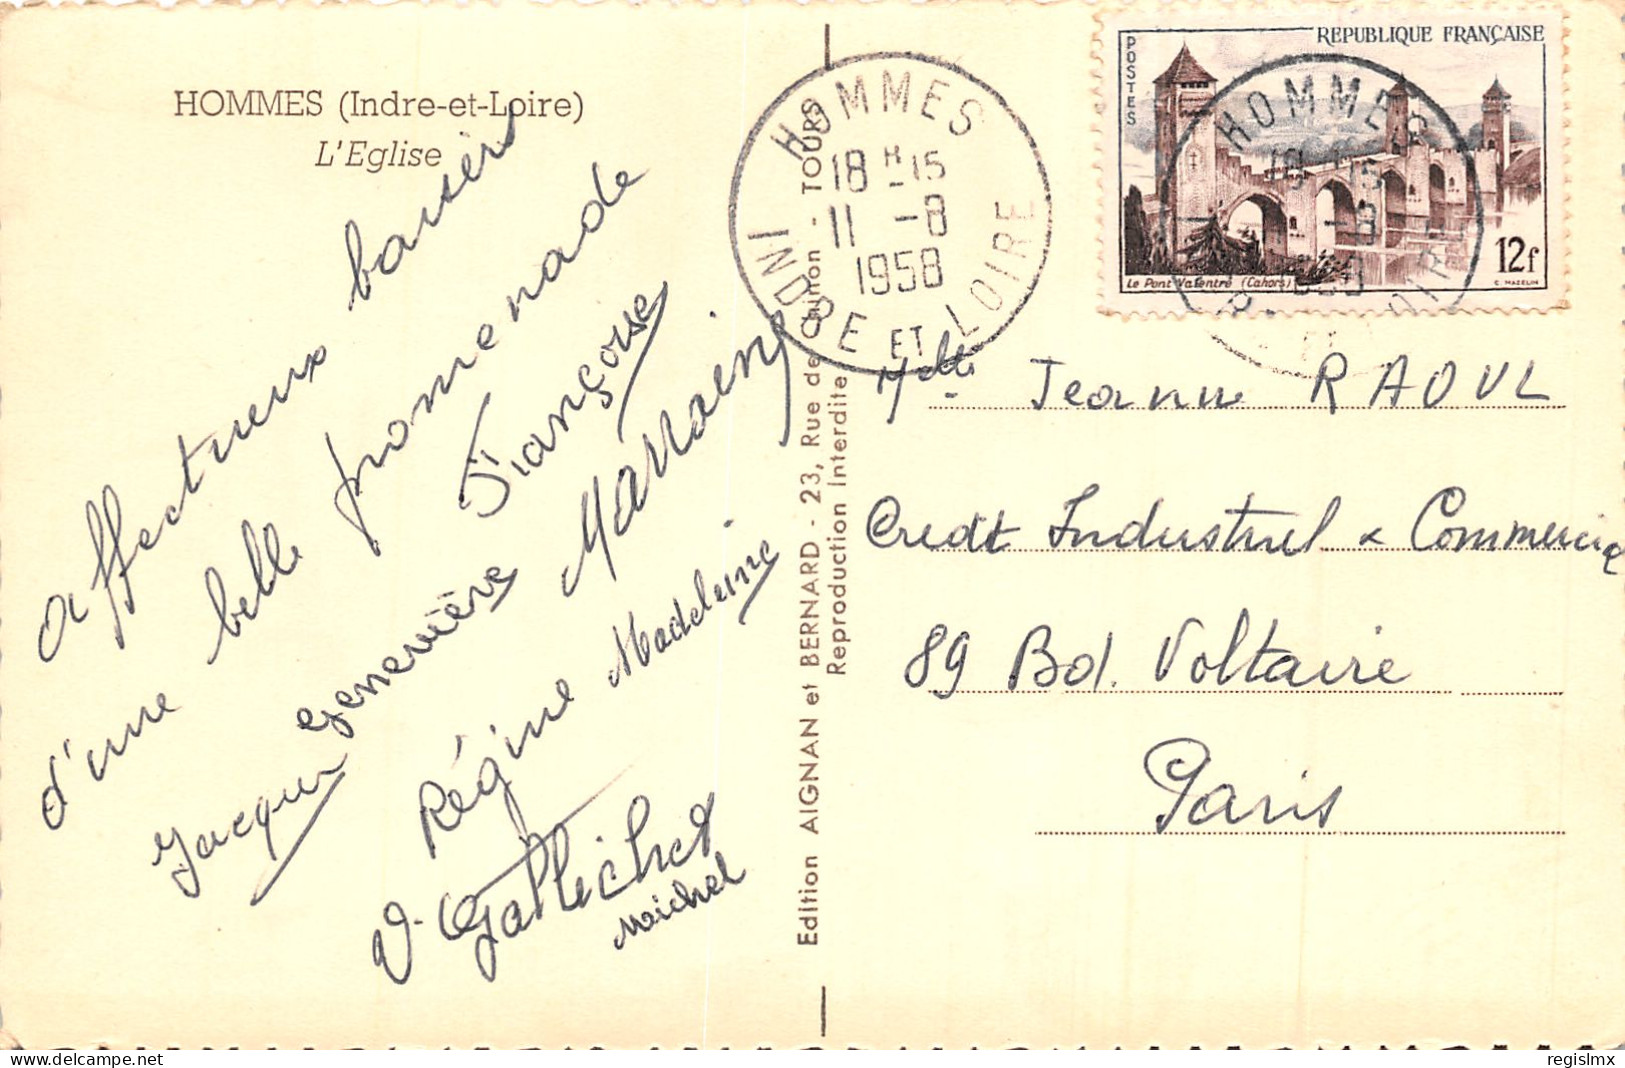 HOMMES (Indre-et-Loire)
L'Eglise
Affectueux baisers
d'une belle promenade
Françoise
Jacques Geneviève Marraine
Régine Madeleine
V. Gallichet
Michel
Edition AIGNAN et BERNARD - 23, Rue de Chinon - TOURS
Reproduction Interdite
HOMMES
18 H 15
11 -8
1958
INDRE ET LOIRE
POSTES
REPUBLIQUE FRANÇAISE
Le Pont Valentré (Cahors)
12f
C. MAZELIN
HOMMES
Melle Jeanne RAOUL
Credit Industriel & Commercial
89 Bd. Voltaire
Paris
regislmx